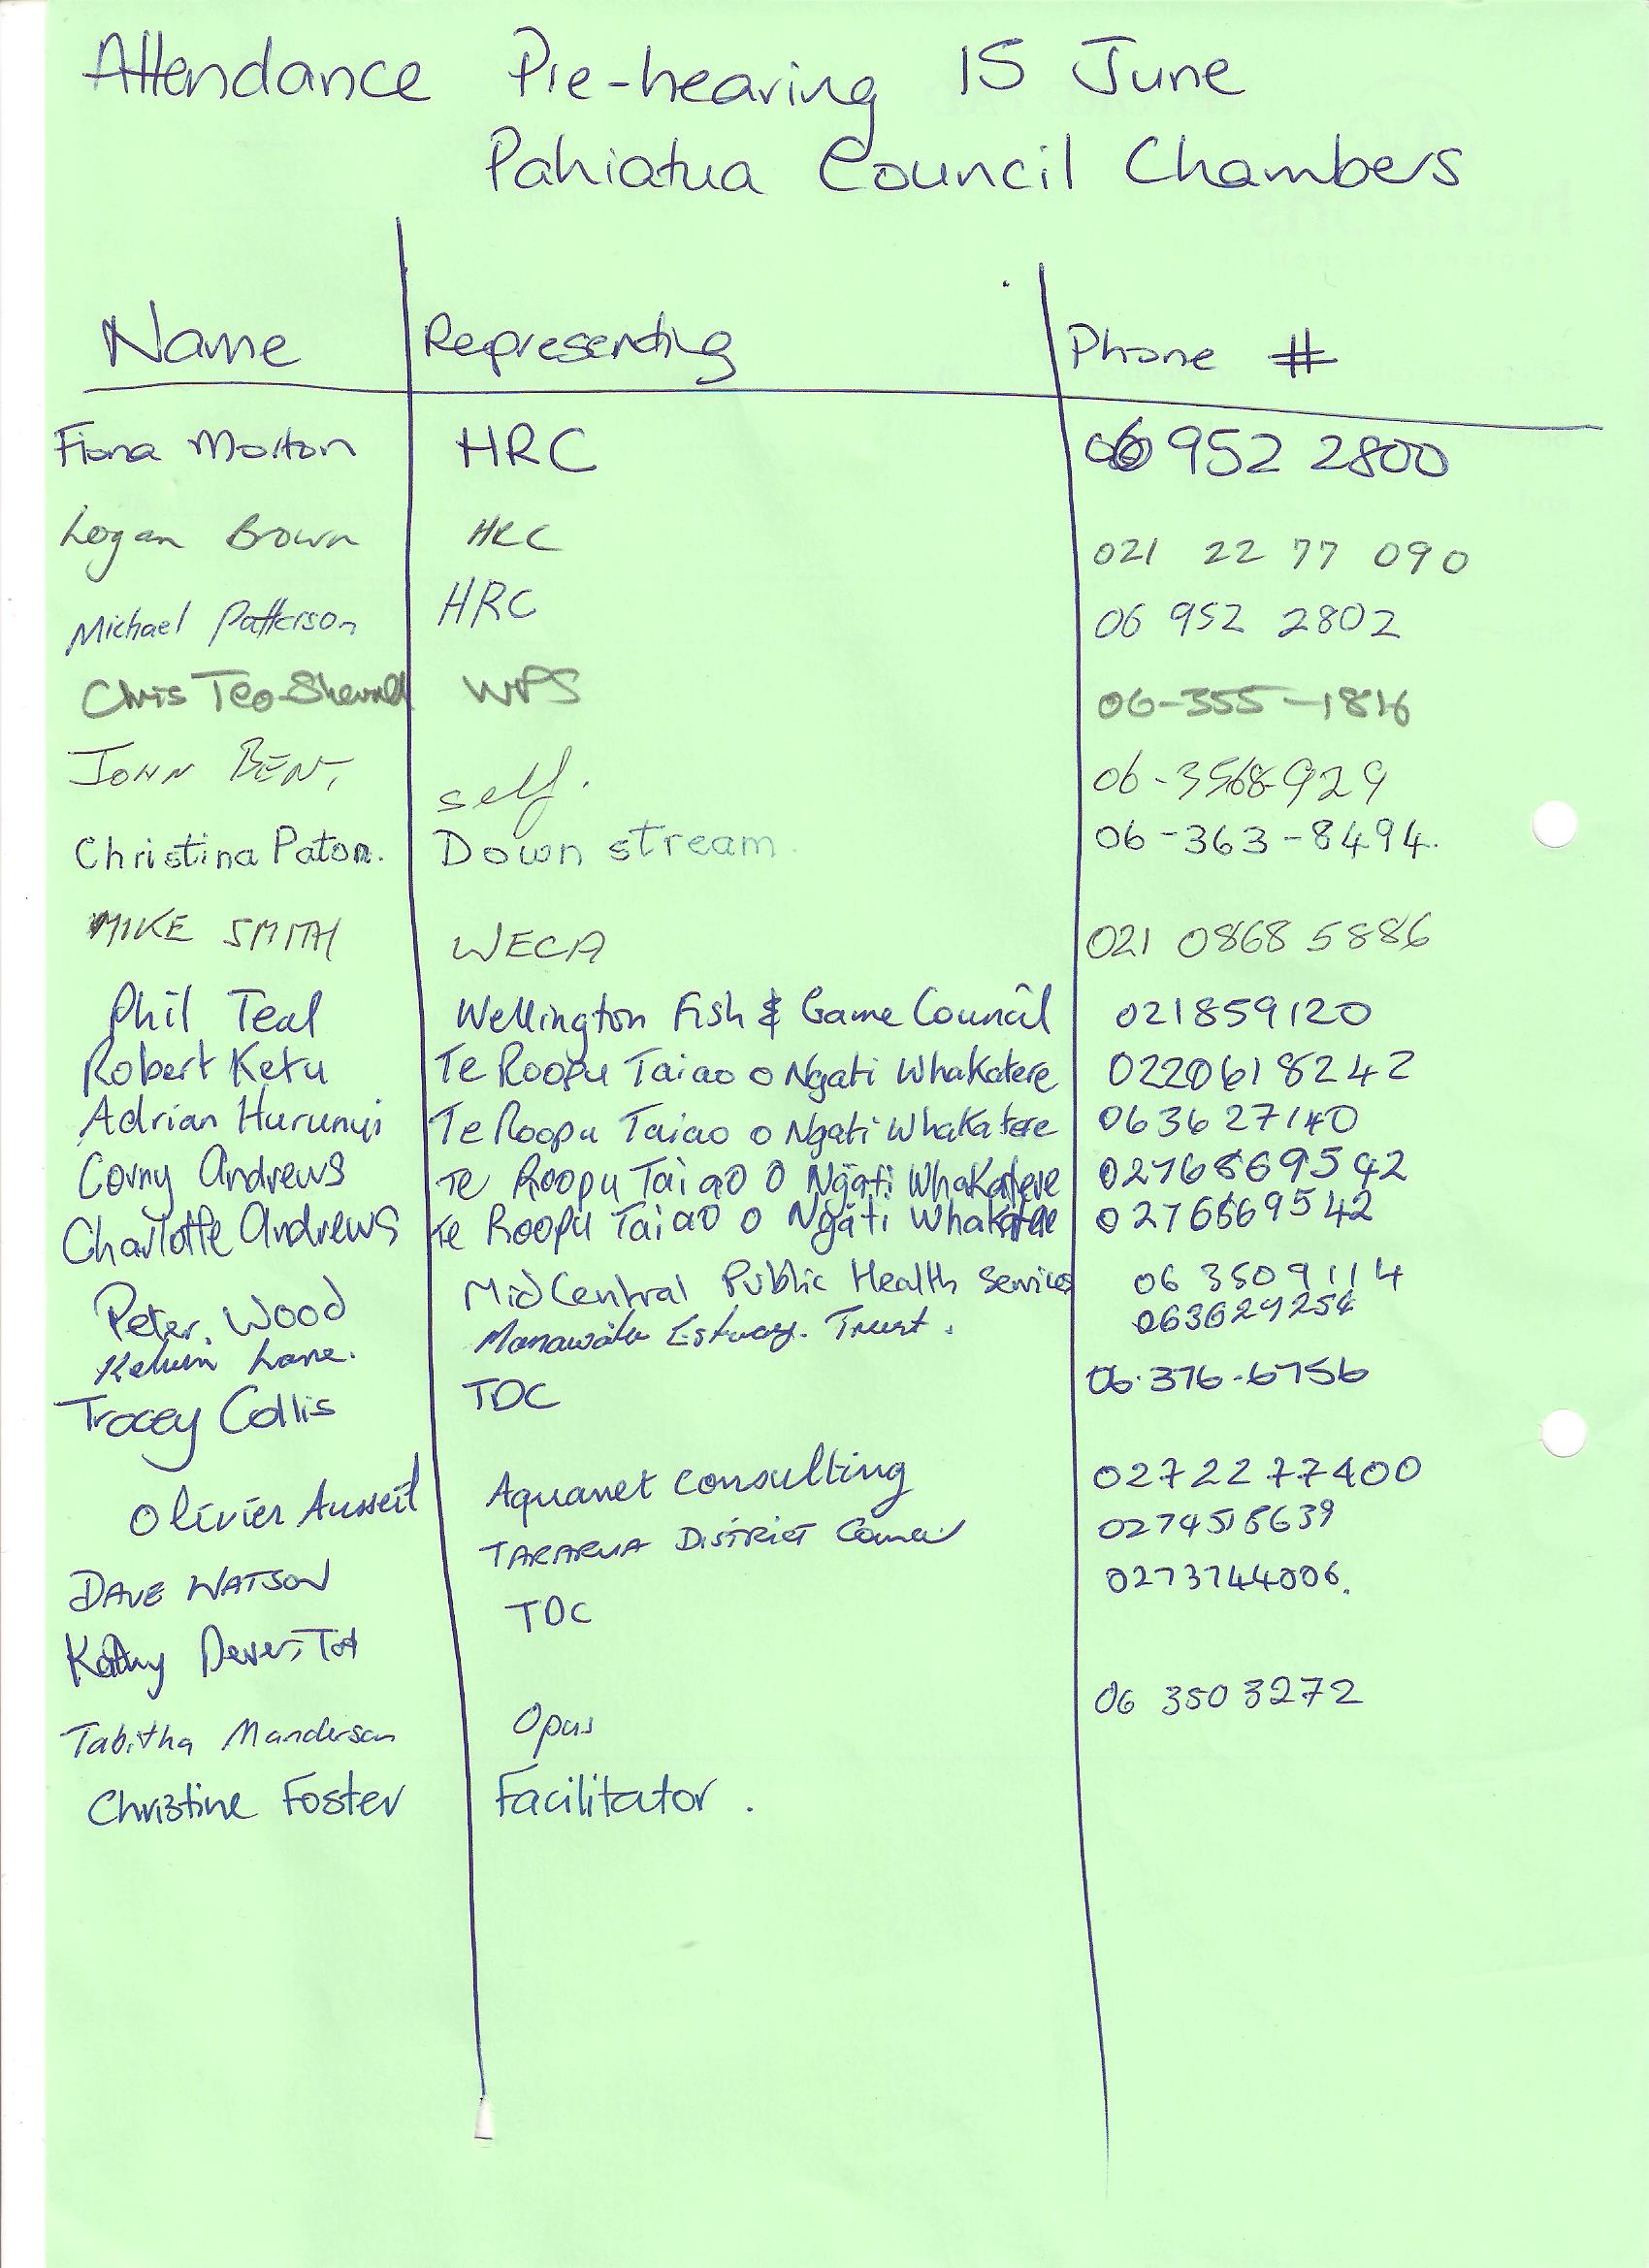 Attendance Pre-hearing 15 June
Pahiatua Council Chambers
Name Representing Phone #
Fiona Morton HRC 06 952 2800
Logan Brown HRC 021 22 77 090
Michael Patterson HRC 06 952 2802
Chris Teo-Sherrell WPS 06-355-1816
JOHN BENT self. 06-3568929
Christina Paton. Down stream. 06-363-8494.
MIKE SMITH WECA 021 0868 5886
Phil Teal Wellington Fish & Game Council 021859120
Robert Ketu Te Roopu Taiao o Ngati Whakatere 0220618242
Adrian Hurunui Te Roopu Taiao o Ngati Whakatere 063627140
Corny Andrews Te Roopu Taiao O Ngāti Whakatere 0276869542
Charlotte Andrews Te Roopu Taiao o Ngāti Whakatere 0276869542
Peter. Wood MidCentral Public Health Services 06 3509114
Kelvin Lane. Manawatu Estuary. Trust. 063629254
Tracey Collis TDC 06.376.6756
Olivier Ausseil Aquanet consulting 02722 77400
DAVE WATSON TARARUA DISTRICT Council 0274515639
Kathy Dever-Tod TDC 0273744006.
Tabitha Manderson Opus 06 350 3272
Christine Foster Facilitator.